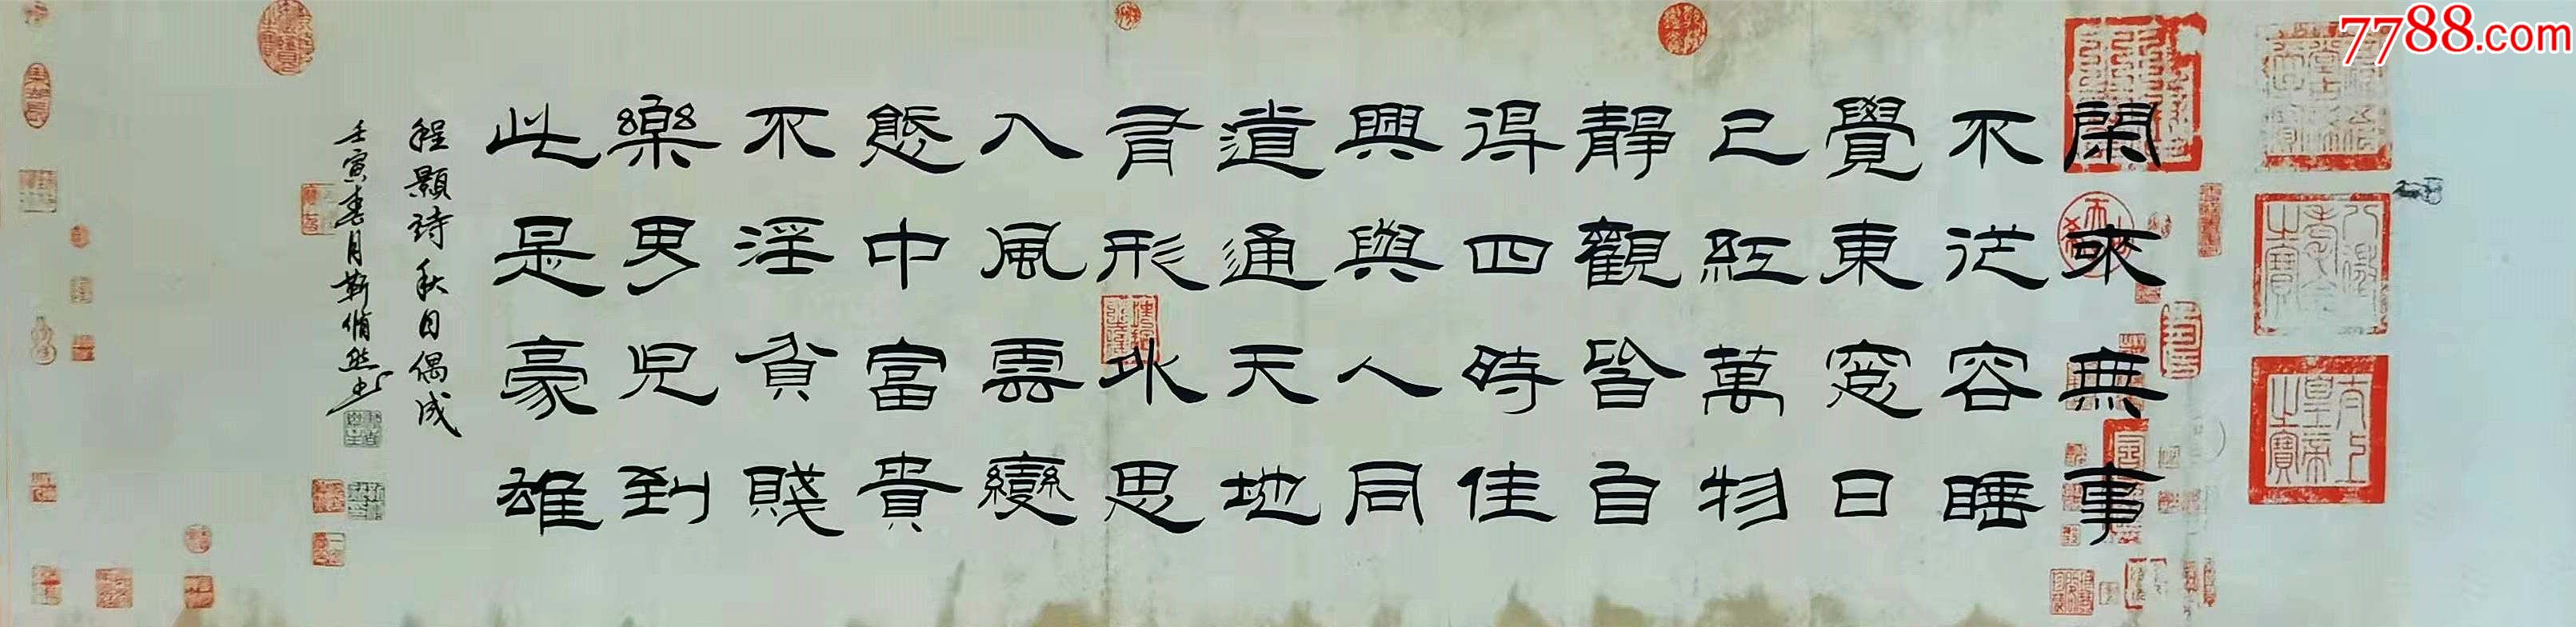 7788.com
閑來無事
不從容睡
覺東窓日
已紅萬物
靜觀皆自
得四時佳
興與人同
道通天地
有形外思
入風雲變
態中富貴
不淫貧賤
樂男兒到
此是豪雄
程顥詩秋日偶成
壬寅春月靳脩然书
八徵耄念之寶
太上皇帝之寶